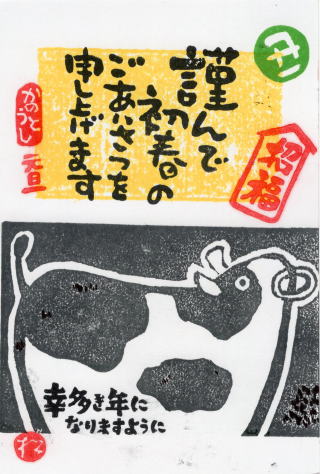 謹んで
初春の
ごあいさつを
申し上げます
かのとうし
元旦
招福
幸多き年に
なりますように